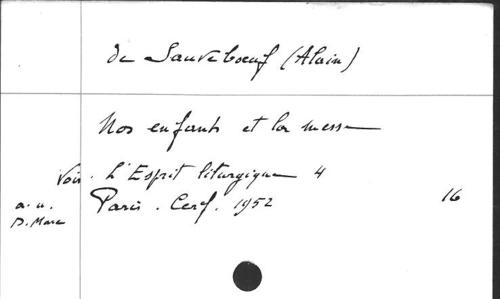 de Sauvebœuf (Alain)
Nos enfants et la messe
Voir. L'Esprit liturgique 4
a. u. Paris. Cerf. 1952 16
D. Marc